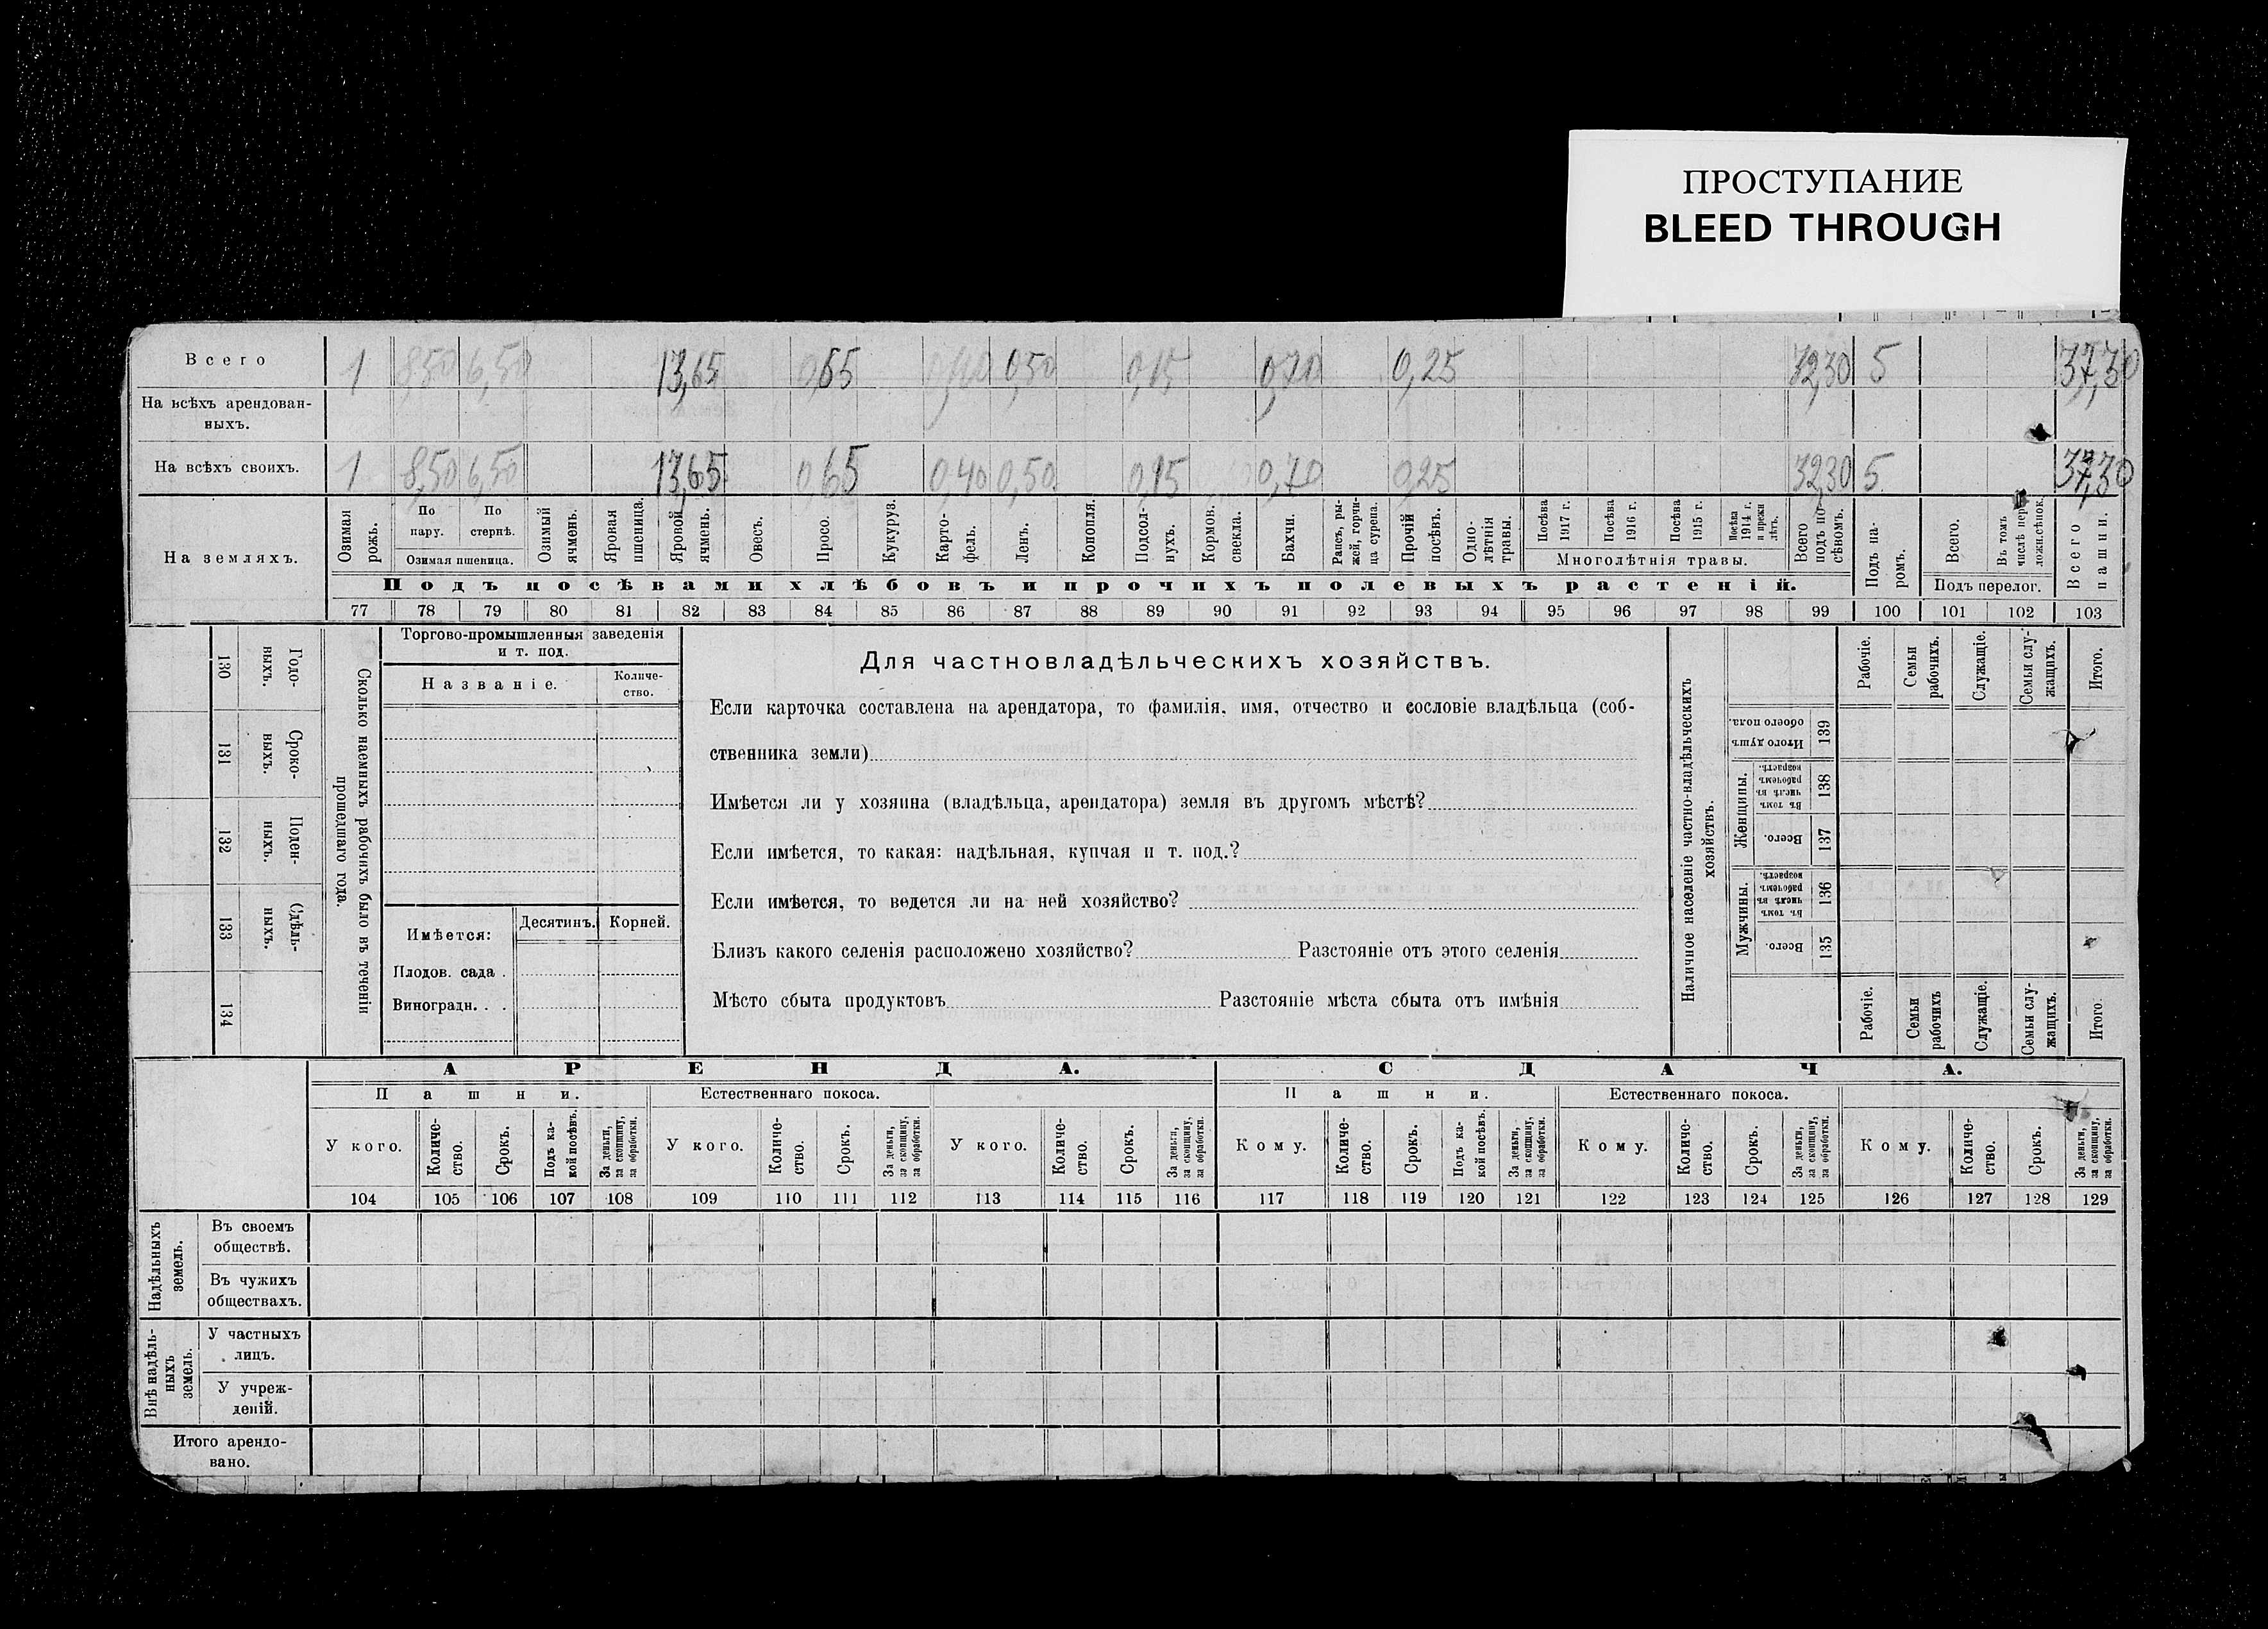 ПРОСТУПАНИЕ
BLEED THROUGH
Всего 1 8,50 6,50 13,65 0,65 0,40 0,50 0,15 0,70 0,25 32,30 5 37,30
На всѣхъ арендован-
ныхъ.
На всѣхъ своихъ. 1 8,50 6,50 13,65 0,65 0,40 0,50 0,15 0,70 0,25 32,30 5 37,30
На земляхъ.
Озимая рожь.
По пару.
По стернѣ.
Озимая пшеница.
Озимый ячмень.
Яровая пшеница.
Яровой ячмень.
Овесъ.
Просо.
Кукуруз.
Карто-
фель.
Ленъ.
Конопля.
Подсол-
нухъ.
Кормов. свекла.
Бахчи.
Рапсъ, ры-
жей, горчи-
ца сурепа.
Прочій посѣвъ.
Одно-
лѣтнія травы.
Посѣва 1917 г.
Посѣва 1916 г.
Посѣва 1915 г.
Посѣва 1914 г. и прежн лѣтъ.
Многолѣтнія травы.
Всего подъ по-
сѣвомъ.
Подъ па-
ромъ.
Всего.
Въ томъ числѣ пере
ложн.сѣнок.
Подъ перелог.
Всего пашни.
Подъ посѣвами хлѣбовъ и прочихъ полевыхъ растеній.
77 78 79 80 81 82 83 84 85 86 87 88 89 90 91 92 93 94 95 96 97 98 99 100 101 102 103
130 Годо-
выхъ.
131 Сроко-
выхъ.
132 Поден-
ныхъ.
133 Сдѣль-
ныхъ.
134
Сколько наемныхъ рабочихъ было въ теченіи
прошедшаго года.
Торгово-промышленныя заведенія
и т. под.
Названіе.
Количе-
ство.
Имѣется:
Десятинъ. Корней.
Плодов. сада .
Виноградн. . .
Для частновладѣльческихъ хозяйствъ.
Если карточка составлена на арендатора, то фамилія, имя, отчество и сословіе владѣльца (соб-
ственника земли)
Имѣется ли у хозяина (владѣльца, арендатора) земля въ другомъ мѣстѣ?
Если имѣется, то какая: надѣльная, купчая и т. под.?
Если имѣется, то ведется ли на ней хозяйство?
Близъ какого селенія расположено хозяйство? Разстояніе отъ этого селенія
Мѣсто сбыта продуктовъ Разстояніе мѣста сбыта отъ имѣнія
Наличное населеніе частно-владѣльческихъ
хозяйствъ.
Рабочіе.
Семьи рабочихъ.
Служащіе.
Семьи слу-
жащихъ.
Итого.
Итого душъ обоего пола. 139
Женщины.
Въ томъ числѣ въ рабочемъ возрастѣ. 138
Всего. 137
Мужчины.
Въ томъ числѣ въ рабочемъ возрастѣ. 136
Всего. 135
Рабочіе.
Семьи рабочихъ
Служащіе.
Семьи слу-
жащихъ.
Итого.
АРЕНДА. СДАЧА.
Пашни. Естественнаго покоса. Пашни. Естественнаго покоса.
У кого.
Количе-
ство.
Срокъ.
Подъ ка-
кой посѣвъ.
За деньги, за скопщину, за обработки.
У кого.
Количе-
ство.
Срокъ.
За деньги, за скопщину, за обработки.
У кого.
Количе-
ство.
Срокъ.
За деньги, за скопщину, за обработки.
Кому.
Количе-
ство.
Срокъ.
Подъ ка-
кой посѣвъ.
За деньги, за скопщину, за обработки.
Кому.
Количе-
ство.
Срокъ.
За деньги, за скопщину, за обработки.
Кому.
Количе-
ство.
Срокъ.
За деньги, за скопщину, за обработки.
104 105 106 107 108 109 110 111 112 113 114 115 116 117 118 119 120 121 122 123 124 125 126 127 128 129
Надѣльныхъ земель.
Въ своемъ
обществѣ.
Въ чужихъ
обществахъ.
Внѣ надѣль-
ныхъ земель.
У частныхъ
лицъ.
У учреж-
деній.
Итого арендо-
вано.